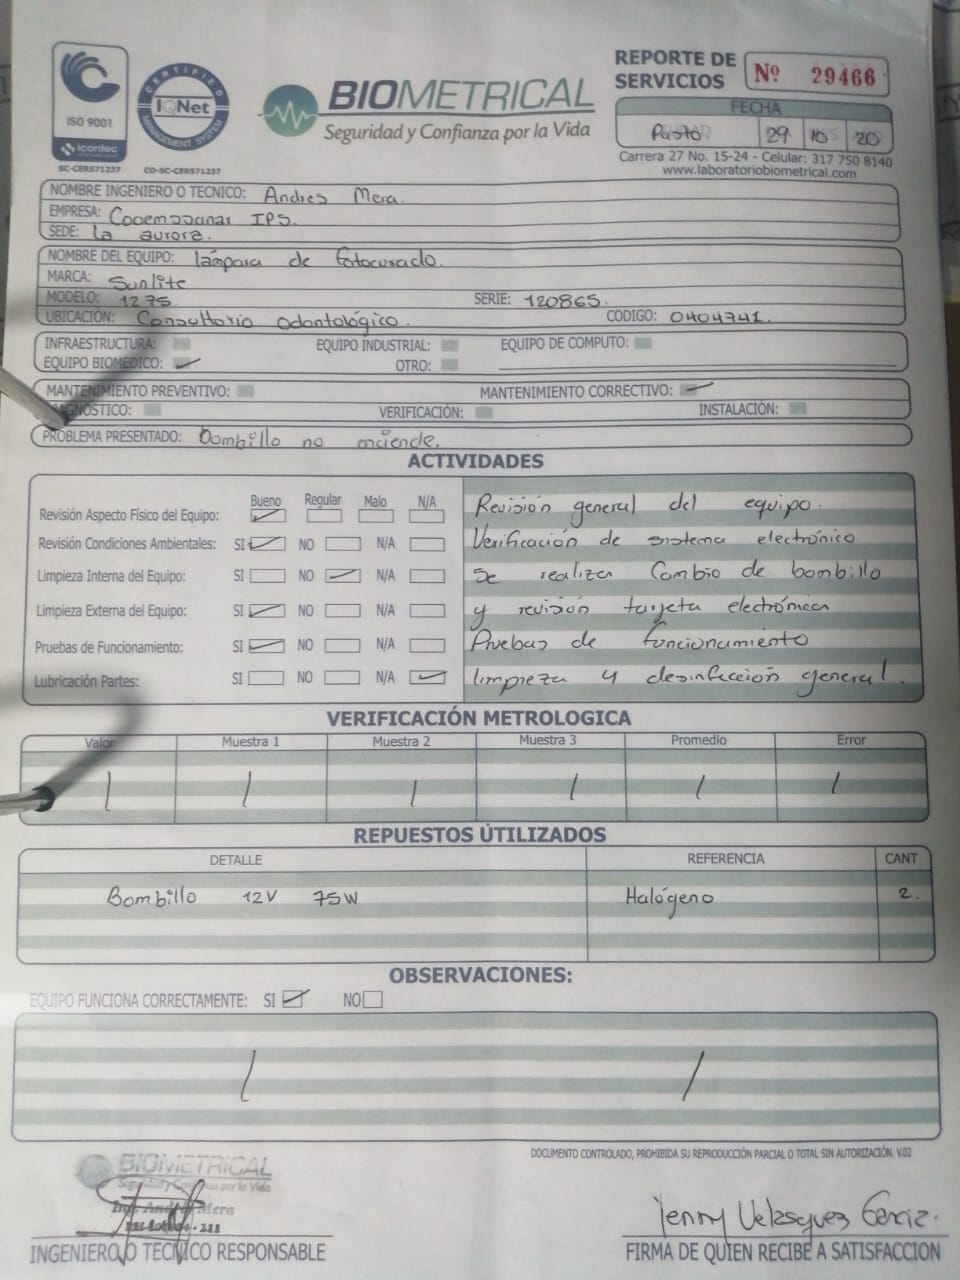 ISO 9001
icontec
SC-CER571237
CERTIFIED
IQNet
MANAGEMENT SYSTEM
CO-SC-CER571237
BIOMETRICAL
Seguridad y Confianza por la Vida
REPORTE DE SERVICIOS
Nº 29466
FECHA
Pasto 29 10 20
Carrera 27 No. 15-24 - Celular: 317 750 8140
www.laboratoriobiometrical.com
NOMBRE INGENIERO O TECNICO: Andres Mera.
EMPRESA: Cooemssanar IPS.
SEDE: la aurora.
NOMBRE DEL EQUIPO: lámpara de fotocurado.
MARCA: Sunlite
MODELO: 1275 SERIE: 120865.
UBICACIÓN: Consultorio Odontológico. CODIGO: 0404741.
INFRAESTRUCTURA: EQUIPO INDUSTRIAL: EQUIPO DE COMPUTO:
EQUIPO BIOMEDICO: OTRO:
MANTENIMIENTO PREVENTIVO: MANTENIMIENTO CORRECTIVO:
DIAGNOSTICO: VERIFICACIÓN: INSTALACIÓN:
PROBLEMA PRESENTADO: Bombillo no enciende.
ACTIVIDADES
Bueno Regular Malo N/A
Revisión Aspecto Físico del Equipo:
Revisión Condiciones Ambientales: SI NO N/A
Limpieza Interna del Equipo: SI NO N/A
Limpieza Externa del Equipo: SI NO N/A
Pruebas de Funcionamiento: SI NO N/A
Lubricación Partes: SI NO N/A
Revisión general del equipo.
Verificación de sistema electrónico
se realiza Cambio de bombillo
y revisión targeta electrónica
Pruebas de funcionamiento
limpieza y desinfección general.
VERIFICACIÓN METROLOGICA
Valor Muestra 1 Muestra 2 Muestra 3 Promedio Error
/ / / / / /
REPUESTOS ÚTILIZADOS
DETALLE REFERENCIA CANT
Bombillo 12V 75W Halógeno 2.
OBSERVACIONES:
EQUIPO FUNCIONA CORRECTAMENTE: SI NO
/ /
DOCUMENTO CONTROLADO, PROHIBIDA SU REPRODUCCIÓN PARCIAL O TOTAL SIN AUTORIZACIÓN. V.02
BIOMETRICAL
Seguridad y Confianza por la Vida
Ing. Andrés Mera
INGENIERO O TECNICO RESPONSABLE
Jenny Velasquez Garcia.
FIRMA DE QUIEN RECIBE A SATISFACCION